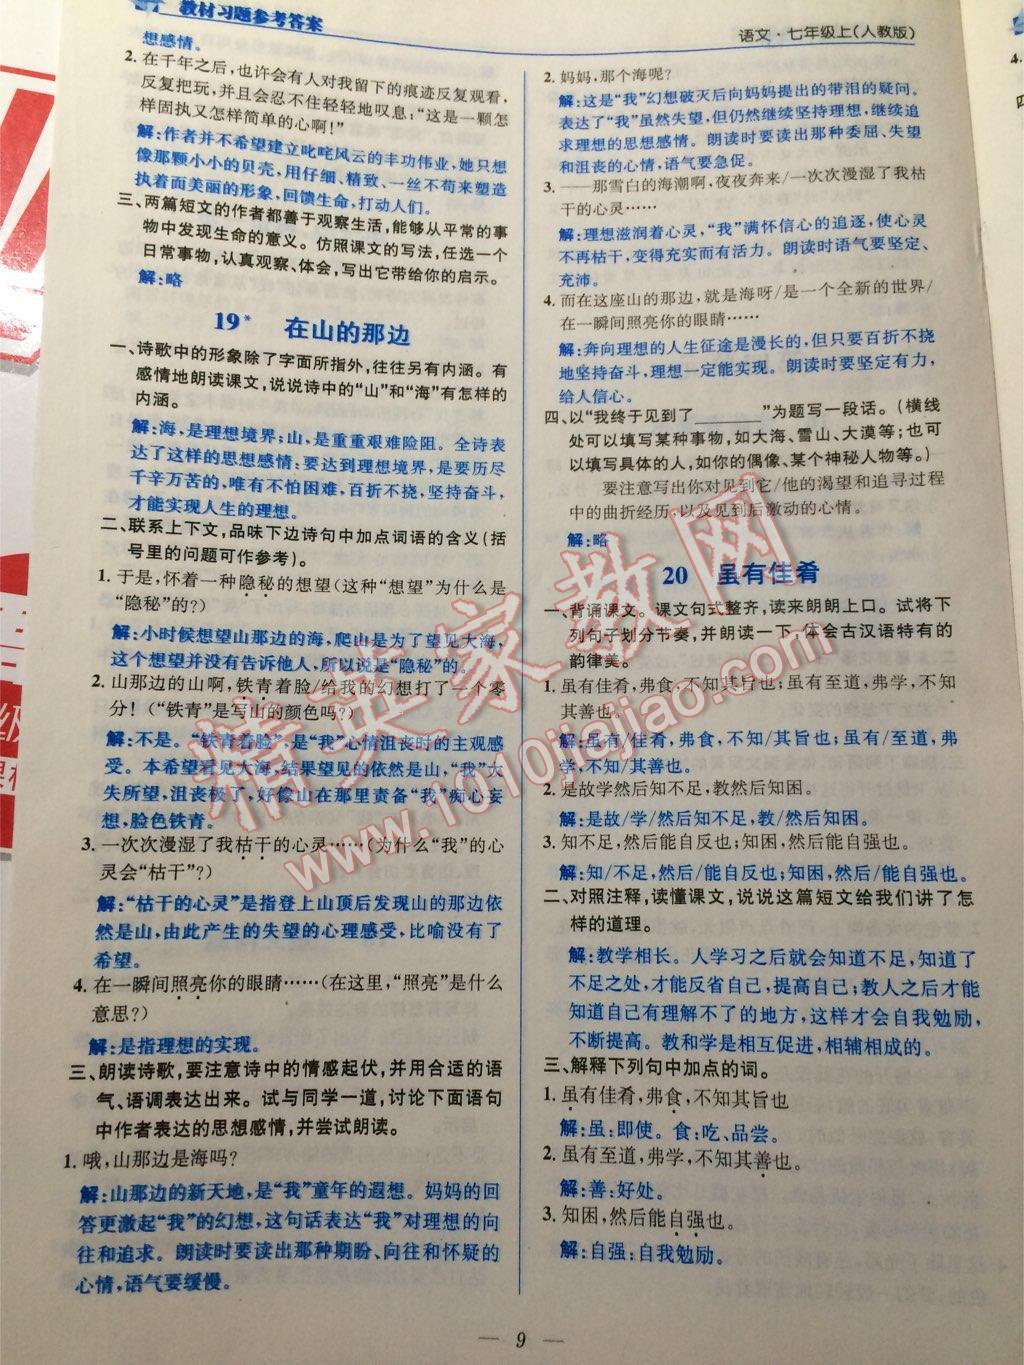 教材习题参考答案
语文·七年级上(人教版)
想感情。
2. 在千年之后,也许会有人对我留下的痕迹反复观看,
反复把玩,并且会忍不住轻轻地叹息:“这是一颗怎
样固执又怎样简单的心啊!”
解:作者并不希望建立叱咤风云的丰功伟业,她只想
像那颗小小的贝壳,用仔细、精致、一丝不苟来塑造
执着而美丽的形象,回馈生命,打动人们。
三、两篇短文的作者都善于观察生活,能够从平常的事
物中发现生命的意义。仿照课文的写法,任选一个
日常事物,认真观察、体会,写出它带给你的启示。
解:略
19* 在山的那边
一、诗歌中的形象除了字面所指外,往往另有内涵。有
感情地朗读课文,说说诗中的“山”和“海”有怎样的
内涵。
解:海,是理想境界;山,是重重艰难险阻。全诗表
达了这样的思想感情:要达到理想境界,是要历尽
千辛万苦的,唯有不怕困难,百折不挠,坚持奋斗,
才能实现人生的理想。
二、联系上下文,品味下边诗句中加点词语的含义(括
号里的问题可作参考)。
1. 于是,怀着一种隐秘的想望(这种“想望”为什么是
“隐秘”的?)
解:小时候想望山那边的海,爬山是为了望见大海,
这个想望并没有告诉他人,所以说是“隐秘”的。
2. 山那边的山啊,铁青着脸/给我的幻想打了一个零
分!(“铁青”是写山的颜色吗?)
解:不是。“铁青着脸”,是“我”心情沮丧时的主观感
受。本希望看见大海,结果望见的依然是山,“我”大
失所望,沮丧极了,好像山在那里责备“我”痴心妄
想,脸色铁青。
3. 一次次漫湿了我枯干的心灵……(为什么“我”的心
灵会“枯干”?)
解:“枯干的心灵”是指登上山顶后发现山的那边依
然是山,由此产生的失望的心理感受,比喻没有了
希望。
4. 在一瞬间照亮你的眼睛……(在这里,“照亮”是什么
意思?)
解:是指理想的实现。
三、朗读诗歌,要注意诗中的情感起伏,并用合适的语
气、语调表达出来。试与同学一道,讨论下面语句
中作者表达的思想感情,并尝试朗读。
1. 哦,山那边是海吗?
解:山那边的新天地,是“我”童年的遐想。妈妈的回
答更激起“我”的幻想,这句话表达“我”对理想的向
往和追求。朗读时要读出那种期盼、向往和怀疑的
心情,语气要缓慢。
2. 妈妈,那个海呢?
解:这是“我”幻想破灭后向妈妈提出的带泪的疑问。
表达了“我”虽然失望,但仍然继续坚持理想,继续追
求理想的思想感情。朗读时要读出那种委屈、失望
和沮丧的心情,语气要急促。
3. ——那雪白的海潮啊,夜夜奔来/一次次漫湿了我枯
干的心灵……
解:理想滋润着心灵,“我”满怀信心的追逐,使心灵
不再枯干,变得充实而有活力。朗读时语气要坚定、
充沛。
4. 而在这座山的那边,就是海呀/是一个全新的世界/
在一瞬间照亮你的眼睛……
解:奔向理想的人生征途是漫长的,但只要百折不挠
地坚持奋斗,理想一定能实现。朗读时要坚定有力,
给人信心。
四、以“我终于见到了________”为题写一段话。(横线
处可以填写某种事物,如大海、雪山、大漠等;也可
以填写具体的人,如你的偶像、某个神秘人物等。)
要注意写出你对见到它/他的渴望和追寻过程
中的曲折经历,以及见到后激动的心情。
解:略
20 虽有佳肴
一、背诵课文。课文句式整齐,读来朗朗上口。试将下
列句子划分节奏,并朗读一下,体会古汉语特有的
韵律美。
1. 虽有佳肴,弗食,不知其旨也;虽有至道,弗学,不知
其善也。
解:虽有/佳肴,弗食,不知/其旨也;虽有/至道,弗
学,不知/其善也。
2. 是故学然后知不足,教然后知困。
解:是故/学/然后知不足,教/然后知困。
3. 知不足,然后能自反也;知困,然后能自强也。
解:知/不足,然后/能自反也;知困,然后/能自强也。
二、对照注释,读懂课文,说说这篇短文给我们讲了怎
样的道理。
解:教学相长。人学习之后就会知道不足,知道了
不足之处,才能反省自己,提高自己;教人之后才能
知道自己有理解不了的地方,这样才会自我勉励,
不断提高。教和学是相互促进,相辅相成的。
三、解释下列句中加点的词。
1. 虽有佳肴,弗食,不知其旨也
解:虽:即使。食:吃、品尝。
2. 虽有至道,弗学,不知其善也。
解:善:好处。
3. 知困,然后能自强也。
解:自强:自我勉励。
— 9 —
精英家教网
www.1010jiajiao.com